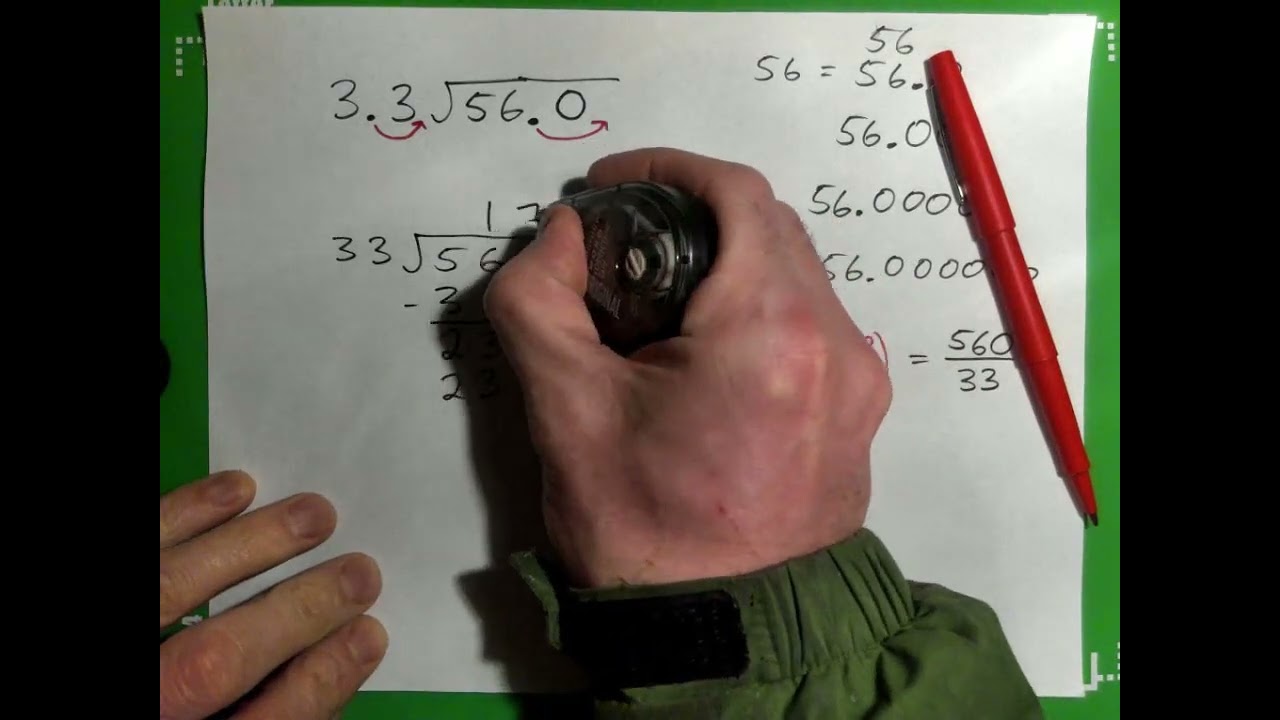 3.3 √56.0
56
56 = 56.
56.0
56.000
56.0000
1 7
33 √56
- 3
2
2
= 560/33